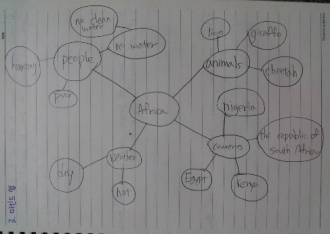 no clean
water
no water
people
hungry
poor
lion
giraffe
animals
cheetah
Africa
nigeria
the republic of
south Africa
Egypt
Kenya
weather
dry
hot